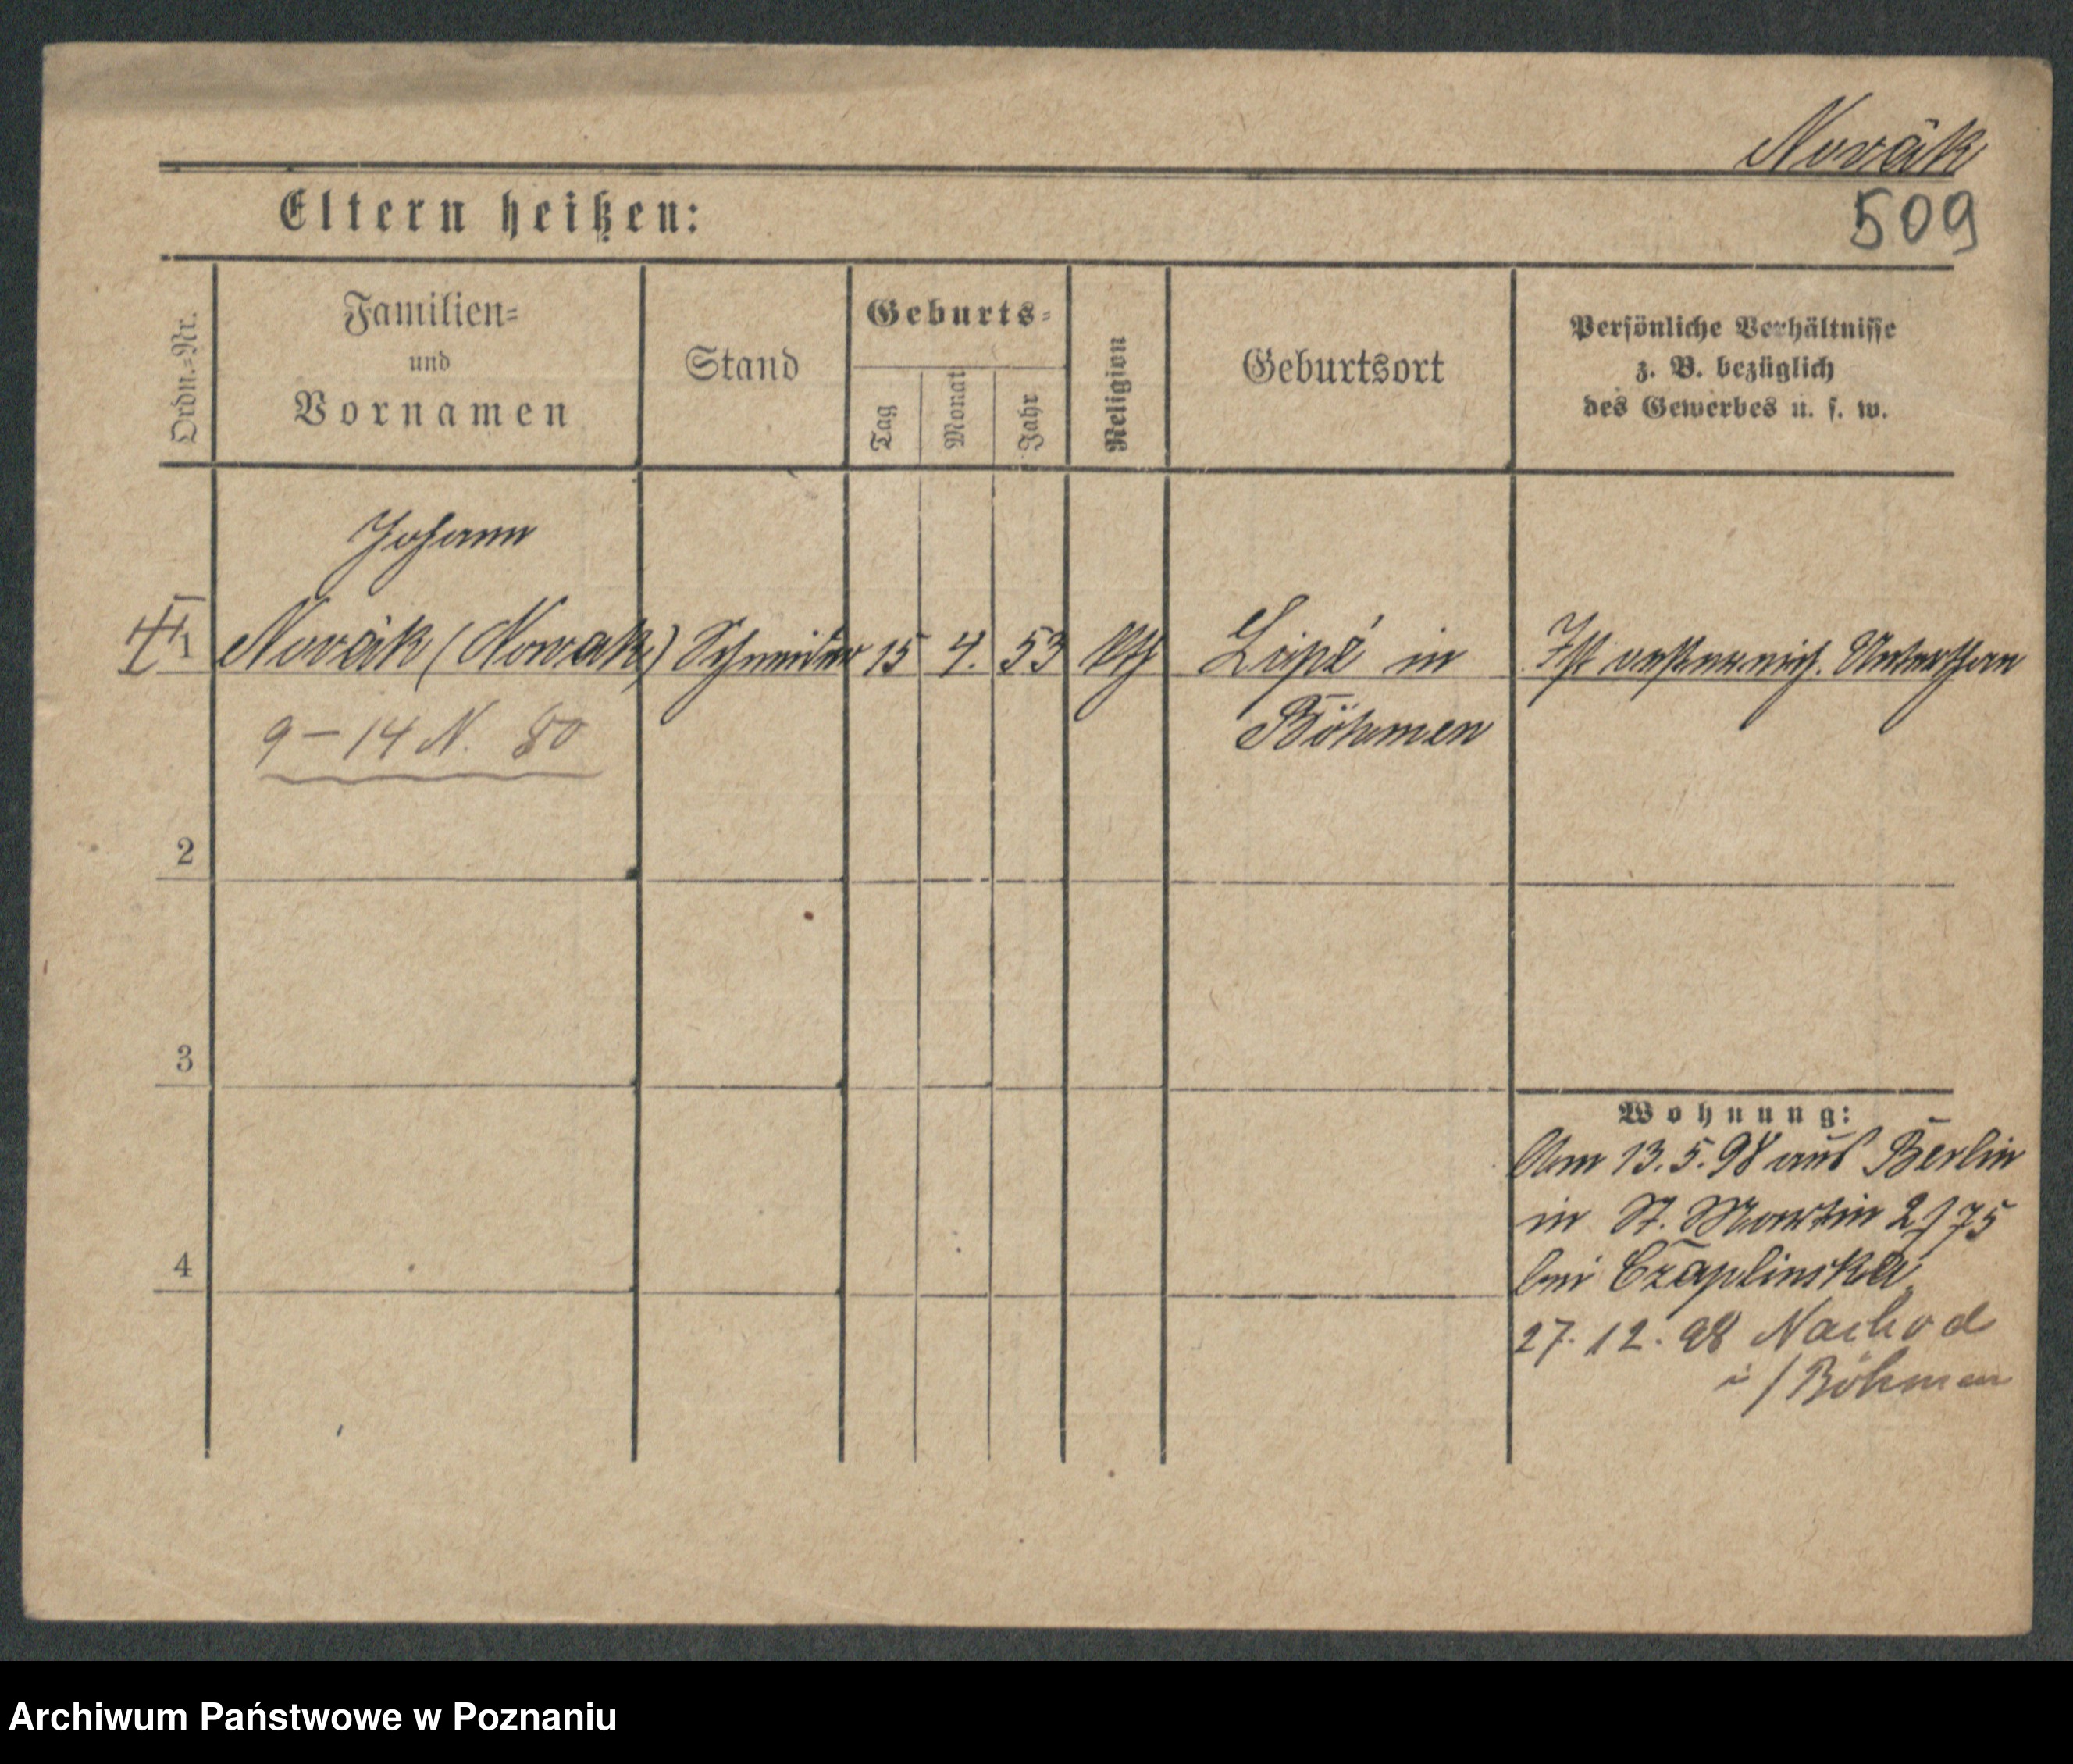 Novák
509
Eltern heißen:
Ordn.-Nr.
Familien-
und
Vornamen
Stand
Geburts-
Tag
Monat
Jahr
Religion
Geburtsort
Persönliche Verhältnisse
z. B. bezüglich
des Gewerbes u. s. w.
Johann
1 Novák (Nowak) Schneider 15 4. 53 kth Lipé in Ist oesterreich. Unterthan
Böhmen
9-14 N. 80
2
3
4
Wohnung:
Am 13.5.98 aus Berlin
in St. Martin 2/75
bei Czaplinska
27.12.98 Nachod
i/Böhmen
Archiwum Państwowe w Poznaniu